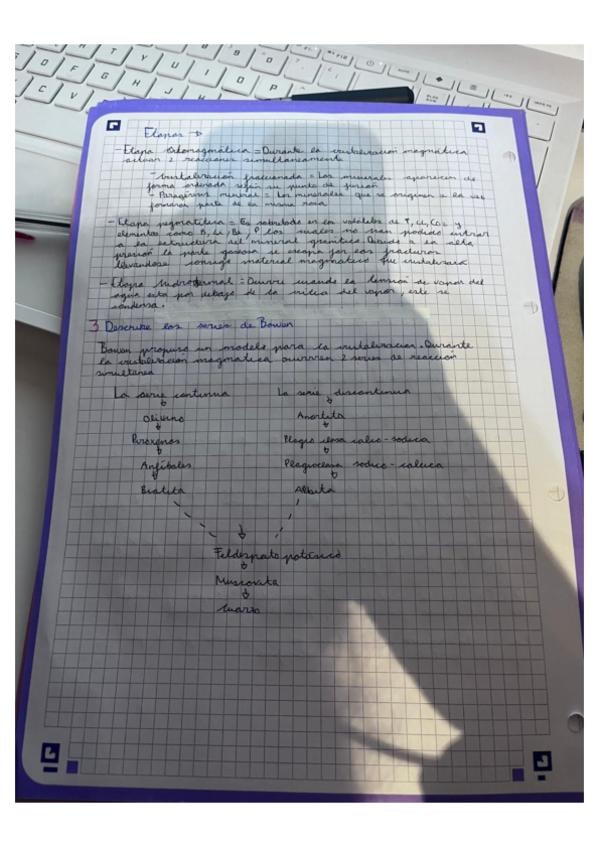 Etapas →
- Etapa Ortomagmática = Durante la cristalización magmática
actuan 2 reacciones simultaneamente
- Cristalización fraccionada = Los minerales aparecen de
forma ordenada según su punto de fusión
- Paragénesis mineral = Los minerales que se originen a la vez
formaran parte de la misma roca
- Etapa pegmatítica = Es sobretodo en los volátiles de F, Cl, CO2 y
elementos como B, Li, Be, P los cuales no han podido entrar
a la estructura del mineral granítico. Debido a la alta
presión la parte gaseosa se escapa por las fracturas
llevandose consigo material magmático que cristalizará
- Etapa hidrotermal = Ocurre cuando la tensión de vapor del
agua está por debajo de la crítica del vapor, este se
condensa.
3. Describe las series de Bowen
Bowen propuso un modelo para la cristalización. Durante
la cristalización magmática ocurren 2 series de reacción
simultanea
La serie continua La serie discontinua
Olivino Anortita
Piroxenos Plagio clasa calco-sodica
Anfíboles Plagioclasa sodico-calcica
Biotita Albita
Feldespato potásico
Muscovita
Cuarzo